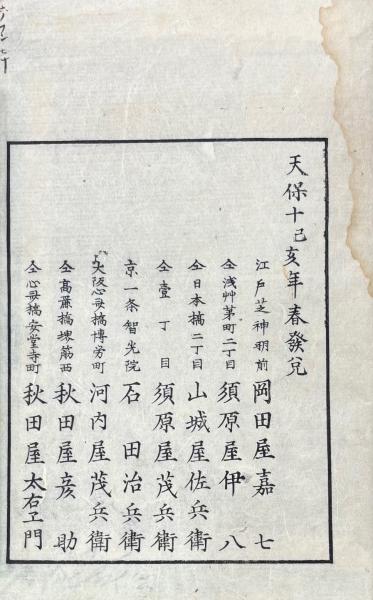 天保十己亥年春發兌
江戸芝神明前 岡田屋嘉七
仝浅艸茅町二丁目 須原屋伊八
仝日本橋二丁目 山城屋佐兵衛
仝壹丁目 須原屋茂兵衛
京一条智光院 石田治兵衛
大阪心斎橋博労町 河内屋茂兵衛
仝高麗橋堺筋西 秋田屋彦助
仝心斎橋安堂寺町 秋田屋太右ヱ門